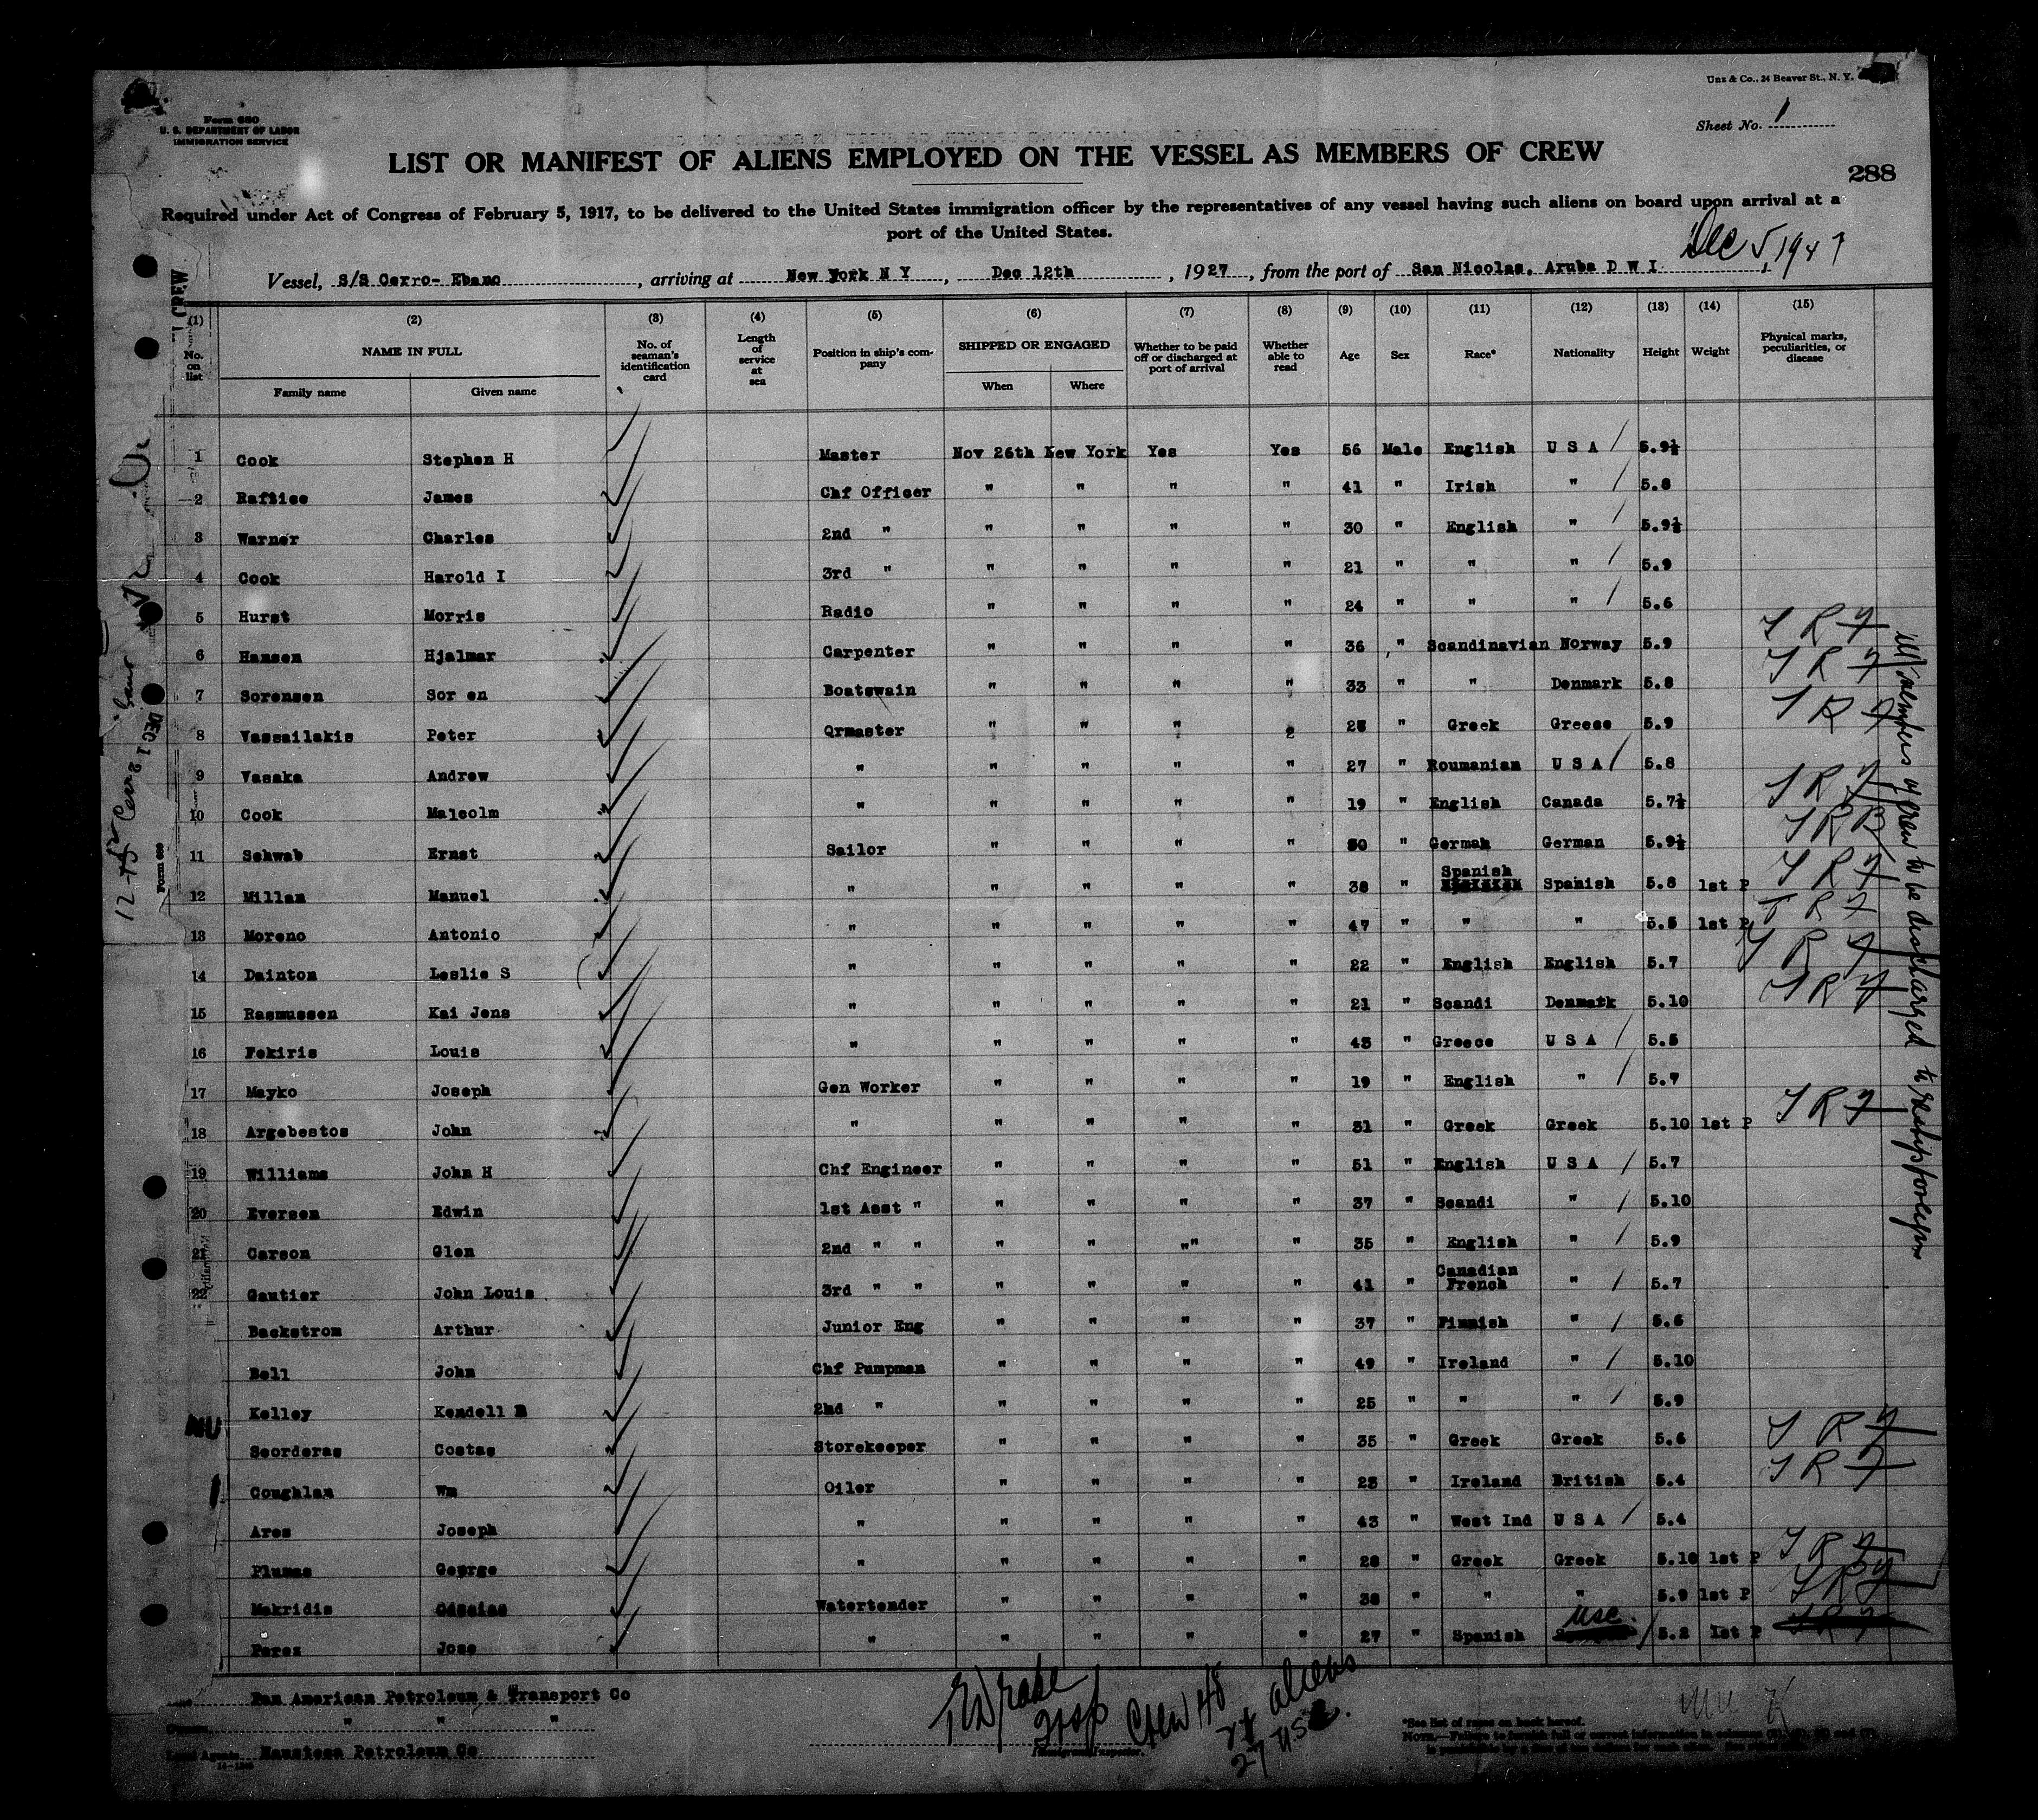 Unz & Co., 24 Beaver St., N. Y.
Form 680
U. S. DEPARTMENT OF LABOR
IMMIGRATION SERVICE
Sheet No. 1
LIST OR MANIFEST OF ALIENS EMPLOYED ON THE VESSEL AS MEMBERS OF CREW
288
Required under Act of Congress of February 5, 1917, to be delivered to the United States immigration officer by the representatives of any vessel having such aliens on board upon arrival at a
port of the United States.
Dec 5, 1927
Vessel, S/S Cerro- Ebano, arriving at New York N Y, Dec 12th, 1927, from the port of San Nicolas, Aruba D W I
(1) (2) (3) (4) (5) (6) (7) (8) (9) (10) (11) (12) (13) (14) (15)
No. on list NAME IN FULL Family name Given name No. of seaman's identification card Length of service at sea Position in ship's company SHIPPED OR ENGAGED When Where Whether to be paid off or discharged at port of arrival Whether able to read Age Sex Race* Nationality Height Weight Physical marks, peculiarities, or disease
1 Cook Stephen H Master Nov 26th New York Yes Yes 56 Male English U S A 5.9½
2 James Chf Officer " " " " 41 " Irish " 5.8
3 Warner Charles 2nd " " " " " 30 " English " 5.9½
4 Cook Harold I 3rd " " " " " 21 " " " 5.9
5 Hurst Morris Radio " " " " 24 " " " 5.6
6 Hansen Hjalmar Carpenter " " " " 36 " Scandinavian Norway 5.9
7 Sorensen Sor en Boatswain " " " " 33 " " Denmark 5.8
8 Vassailakis Peter Qrmaster " " " " " Greek Greece 5.9
9 Vasaka Andrew " " " " " 27 " Roumanian U S A 5.8
10 Cook Malcolm " " " " " 19 " English Canada 5.7½
11 Schwab Ernst Sailor " " " " " German German 5.9½
12 Millan Manuel " " " " " 38 " Spanish Spanish 5.8 1st P
13 Moreno Antonio " " " " " 47 " " " 5.5 1st P
14 Dainton Leslie S " " " " " 22 " English English 5.7
15 Rasmussen Kai Jens " " " " " 21 " Scandi Denmark 5.10
16 Fekiris Louis " " " " " 43 " Greece U S A 5.5
17 Mayko Joseph Gen Worker " " " " 19 " English " 5.7
18 Argebestos John " " " " " 31 " Greek Greek 5.10 1st P
19 Williams John H Chf Engineer " " " " 51 " English U S A 5.7
20 Eversen Edwin 1st Asst " " " " " 37 " Scandi " 5.10
21 Carson Glen 2nd " " " " "" " 35 " English " 5.9
22 Gautier John Louis 3rd " " " " " " 41 " Canadian French " 5.7
Backstrom Arthur Junior Eng " " " " 37 " Finnish " 5.6
Bell John Chf Pumpman " " " " 49 " Ireland " 5.10
Kelley Kendell 2nd " " " " " 25 " " " 5.9
Seorderas Costas Storekeeper " " " " 35 " Greek Greek 5.6
Coughlan Wm Oiler " " " " " Ireland British 5.4
Ares Joseph " " " " " 43 " West Ind U S A 5.4
Plumas George " " " " " 28 " Greek Greek 5.10 1st P
Makridis Watertender " " " " 38 " " " 5.9 1st P
Perez Jose " " " " " 27 " Spanish USC. 5.2 1st P
All members of crew to be discharged to reship foreign
Pan American Petroleum & Transport Co
" " "
Petroleum Co
Crew 48
aliens
27 USC.
Immigrant Inspector.
*See list of races on back hereof.